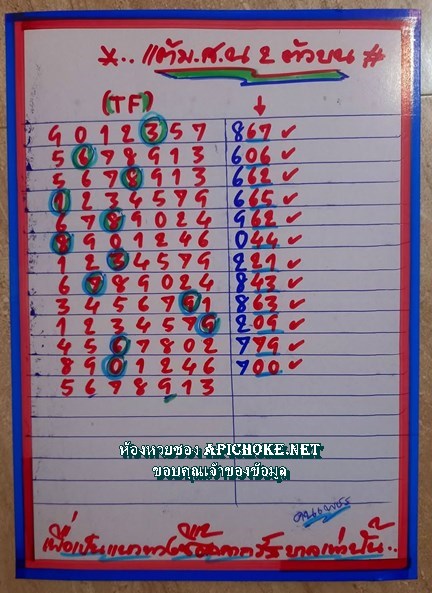 *.. แต้ม.ศ.น 2 ตัวบน #
(TF) ↓
9 0 1 2 3 5 7 867 ✓
5 6 7 8 9 1 3 606 ✓
5 6 7 8 9 1 3 662 ✓
1 2 3 4 5 7 9 665 ✓
6 7 8 9 0 2 4 962 ✓
8 9 0 1 2 4 6 044 ✓
1 2 3 4 5 7 9 221 ✓
6 7 8 9 0 2 4 843 ✓
3 4 5 6 7 9 1 863 ✓
1 2 3 4 5 7 9 209 ✓
4 5 6 7 8 0 2 779 ✓
8 9 0 1 2 4 6 700 ✓
5 6 7 8 9 1 3
ห้องหวยซอง APICHOKE.NET
ขอบคุณเจ้าของข้อมูล
เพื่อเป็นแนวทาง
เท่านั้น..